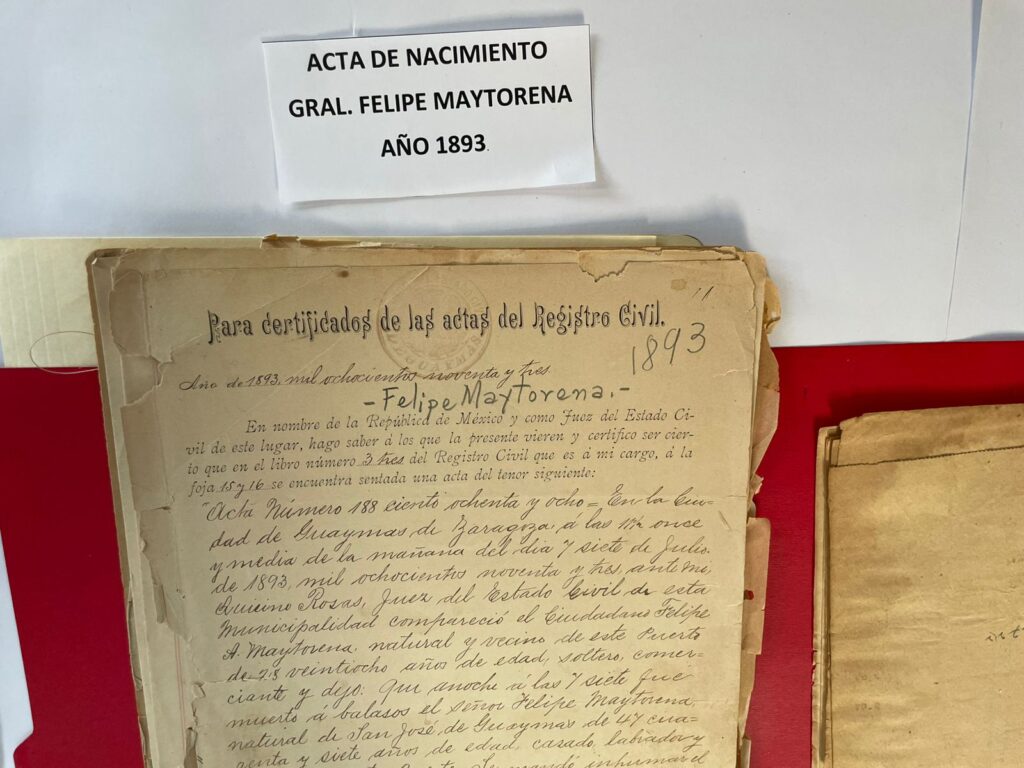 ACTA DE NACIMIENTO
GRAL. FELIPE MAYTORENA
AÑO 1893.
11
Para certificados de las actas del Registro Civil.
1893
Año de 1893, mil ochocientos noventa y tres
-Felipe Maytorena.-
En nombre de la República de México y como Juez del Estado Ci-
vil de este lugar, hago saber á los que la presente vieren y certifico ser cier-
to que en el libro número 3 tres del Registro Civil que es á mi cargo, á la
foja 15 y 16 se encuentra sentada una acta del tenor siguiente:
"Acta Número 188 ciento ochenta y ocho = En la Ciu-
dad de Guaymas de Zaragoza, á las 11½ once
y media de la mañana del dia 7 siete de Julio
de 1893, mil ochocientos noventa y tres, ante mi,
Rosas, Juez del Estado Civil de esta
Municipalidad compareció el Ciudadano Felipe
A. Maytorena, natural y vecino de este Puerto
de 28 veintiocho años de edad, soltero, comer-
ciante y dijo: Que anoche á las 7 siete fue
muerto á balasos el señor Felipe Maytorena,
natural de San José de Guaymas de 47 cua-
renta y siete años de edad, casado, labrador y
Se mandó inhumar el